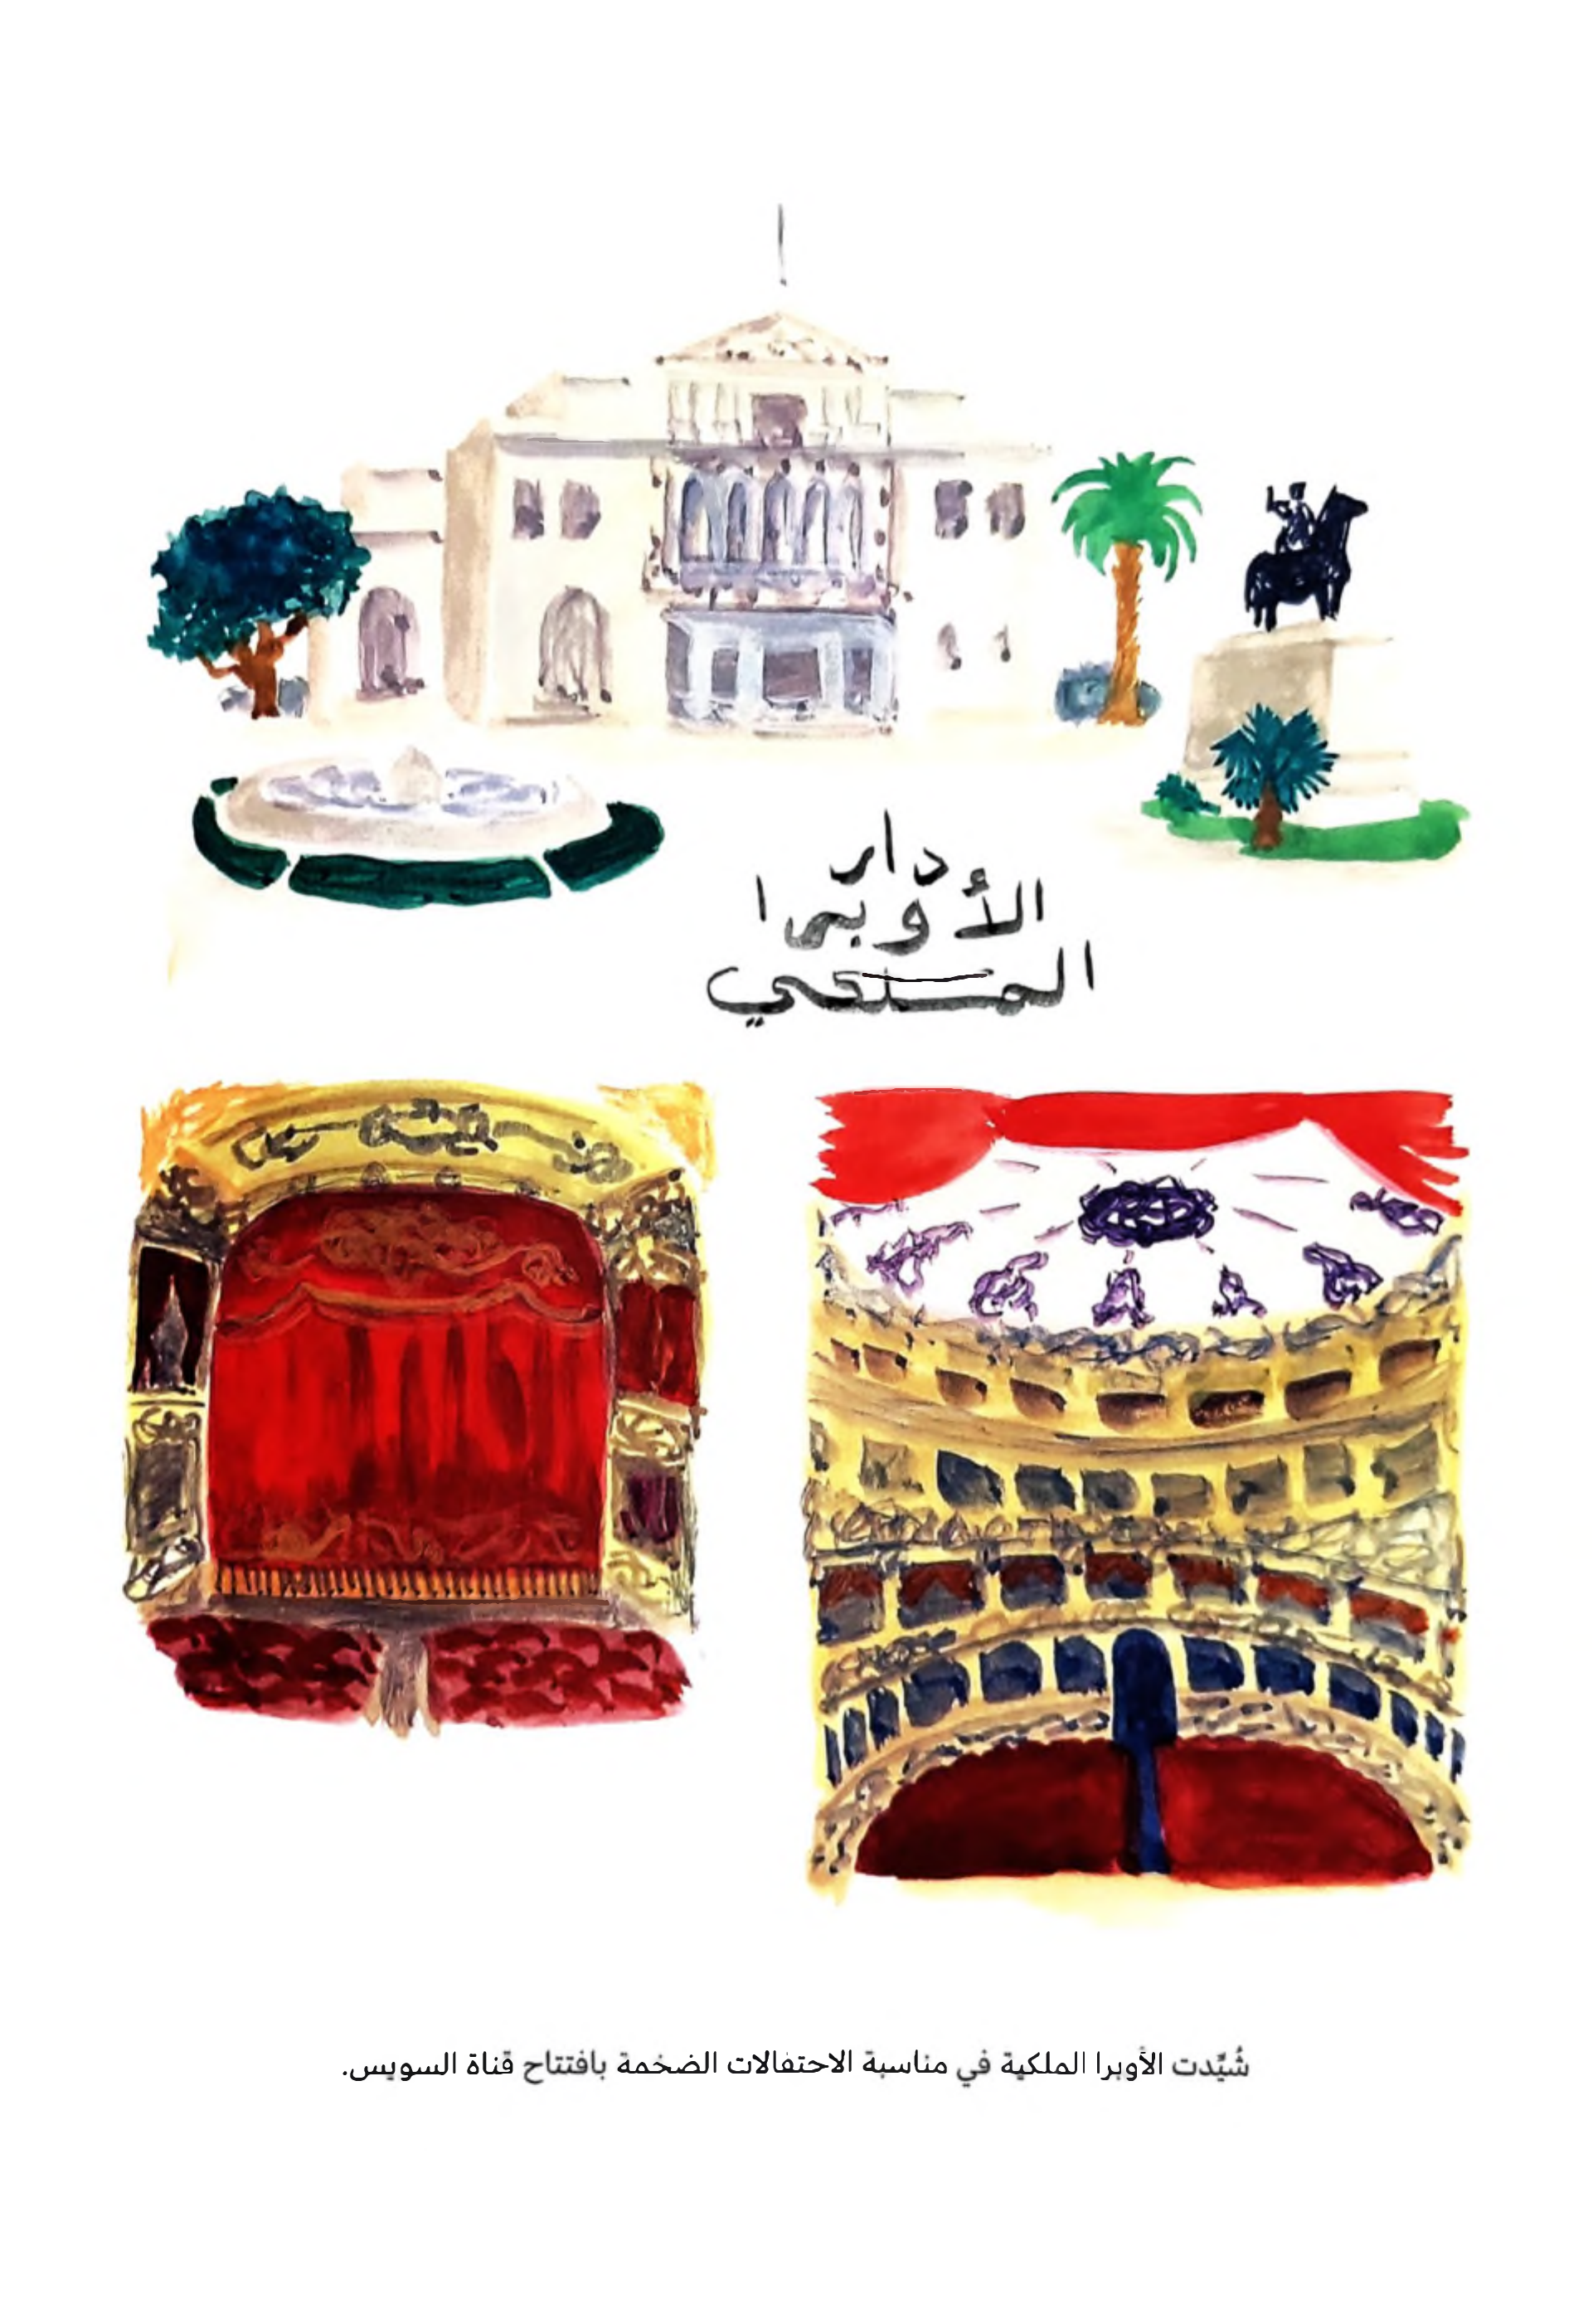 دار
الأوبرا
الملكي
شُيِّدت الأوبرا الملكية في مناسبة الاحتفالات الضخمة بافتتاح قناة السويس.